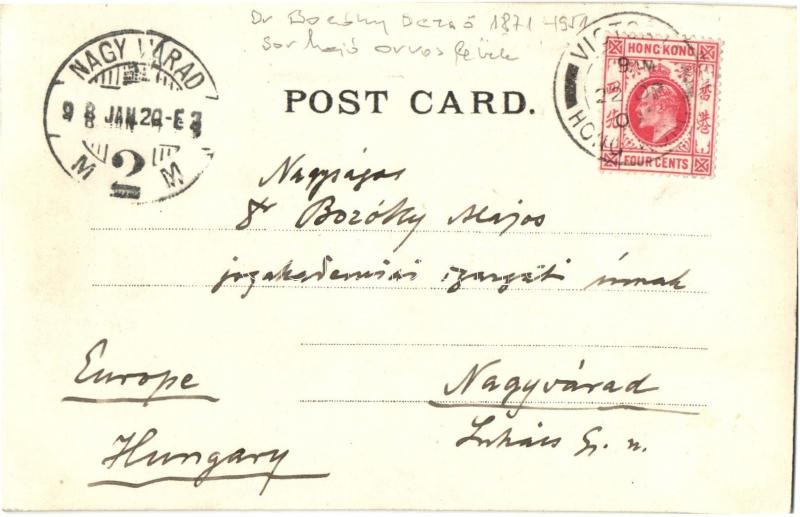 Dr Bozóky Dezső 1871-1951
sorhajó orvos levele
NAGY VÁRAD
98 JAN.20-E3
M 2 M
POST CARD.
VICTORIA
9 AM
22
HONG
HONG KONG
香港
四先
FOUR CENTS
Nagyságos
Dr Bozóky Alajos
jogakademiai igazgató úrnak
Europe
Nagyvárad
Hungary
Lukács Gy. u.